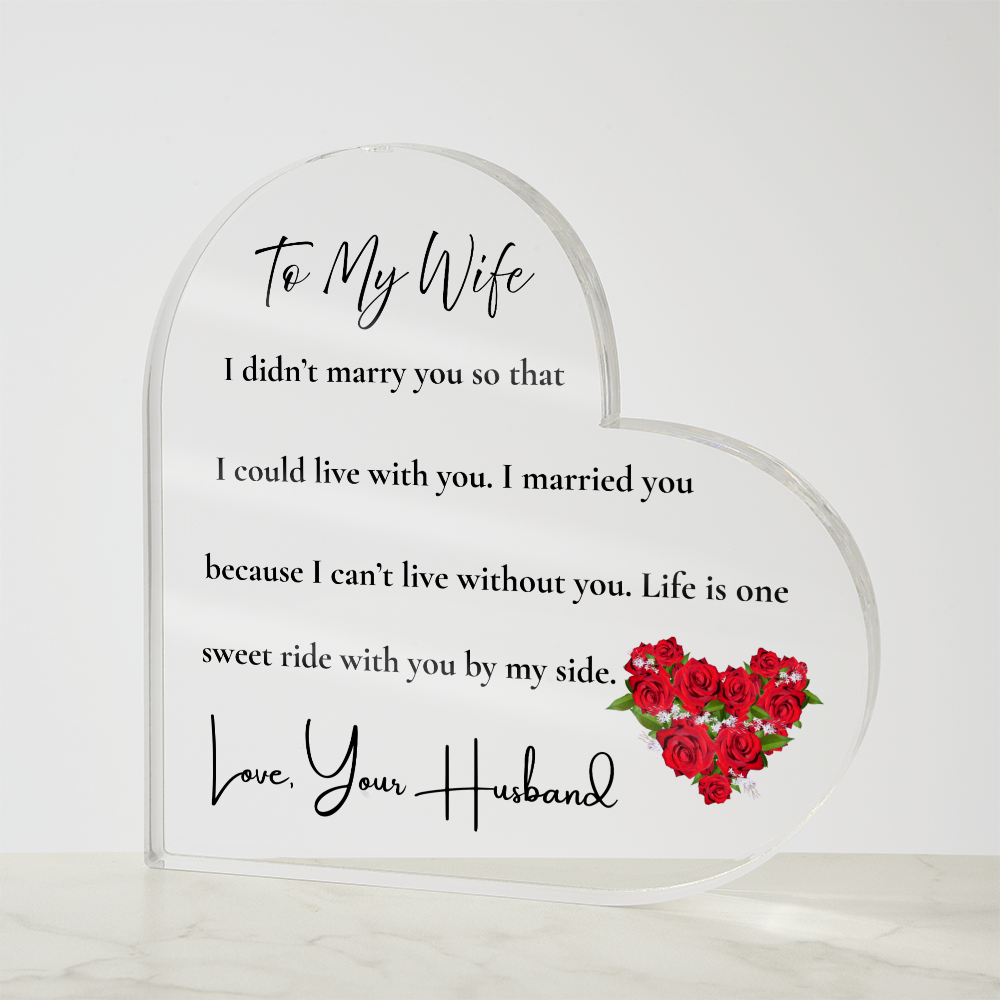 To My Wife
I didn't marry you so that
I could live with you. I married you
because I can't live without you. Life is one
sweet ride with you by my side.
Love, Your Husband